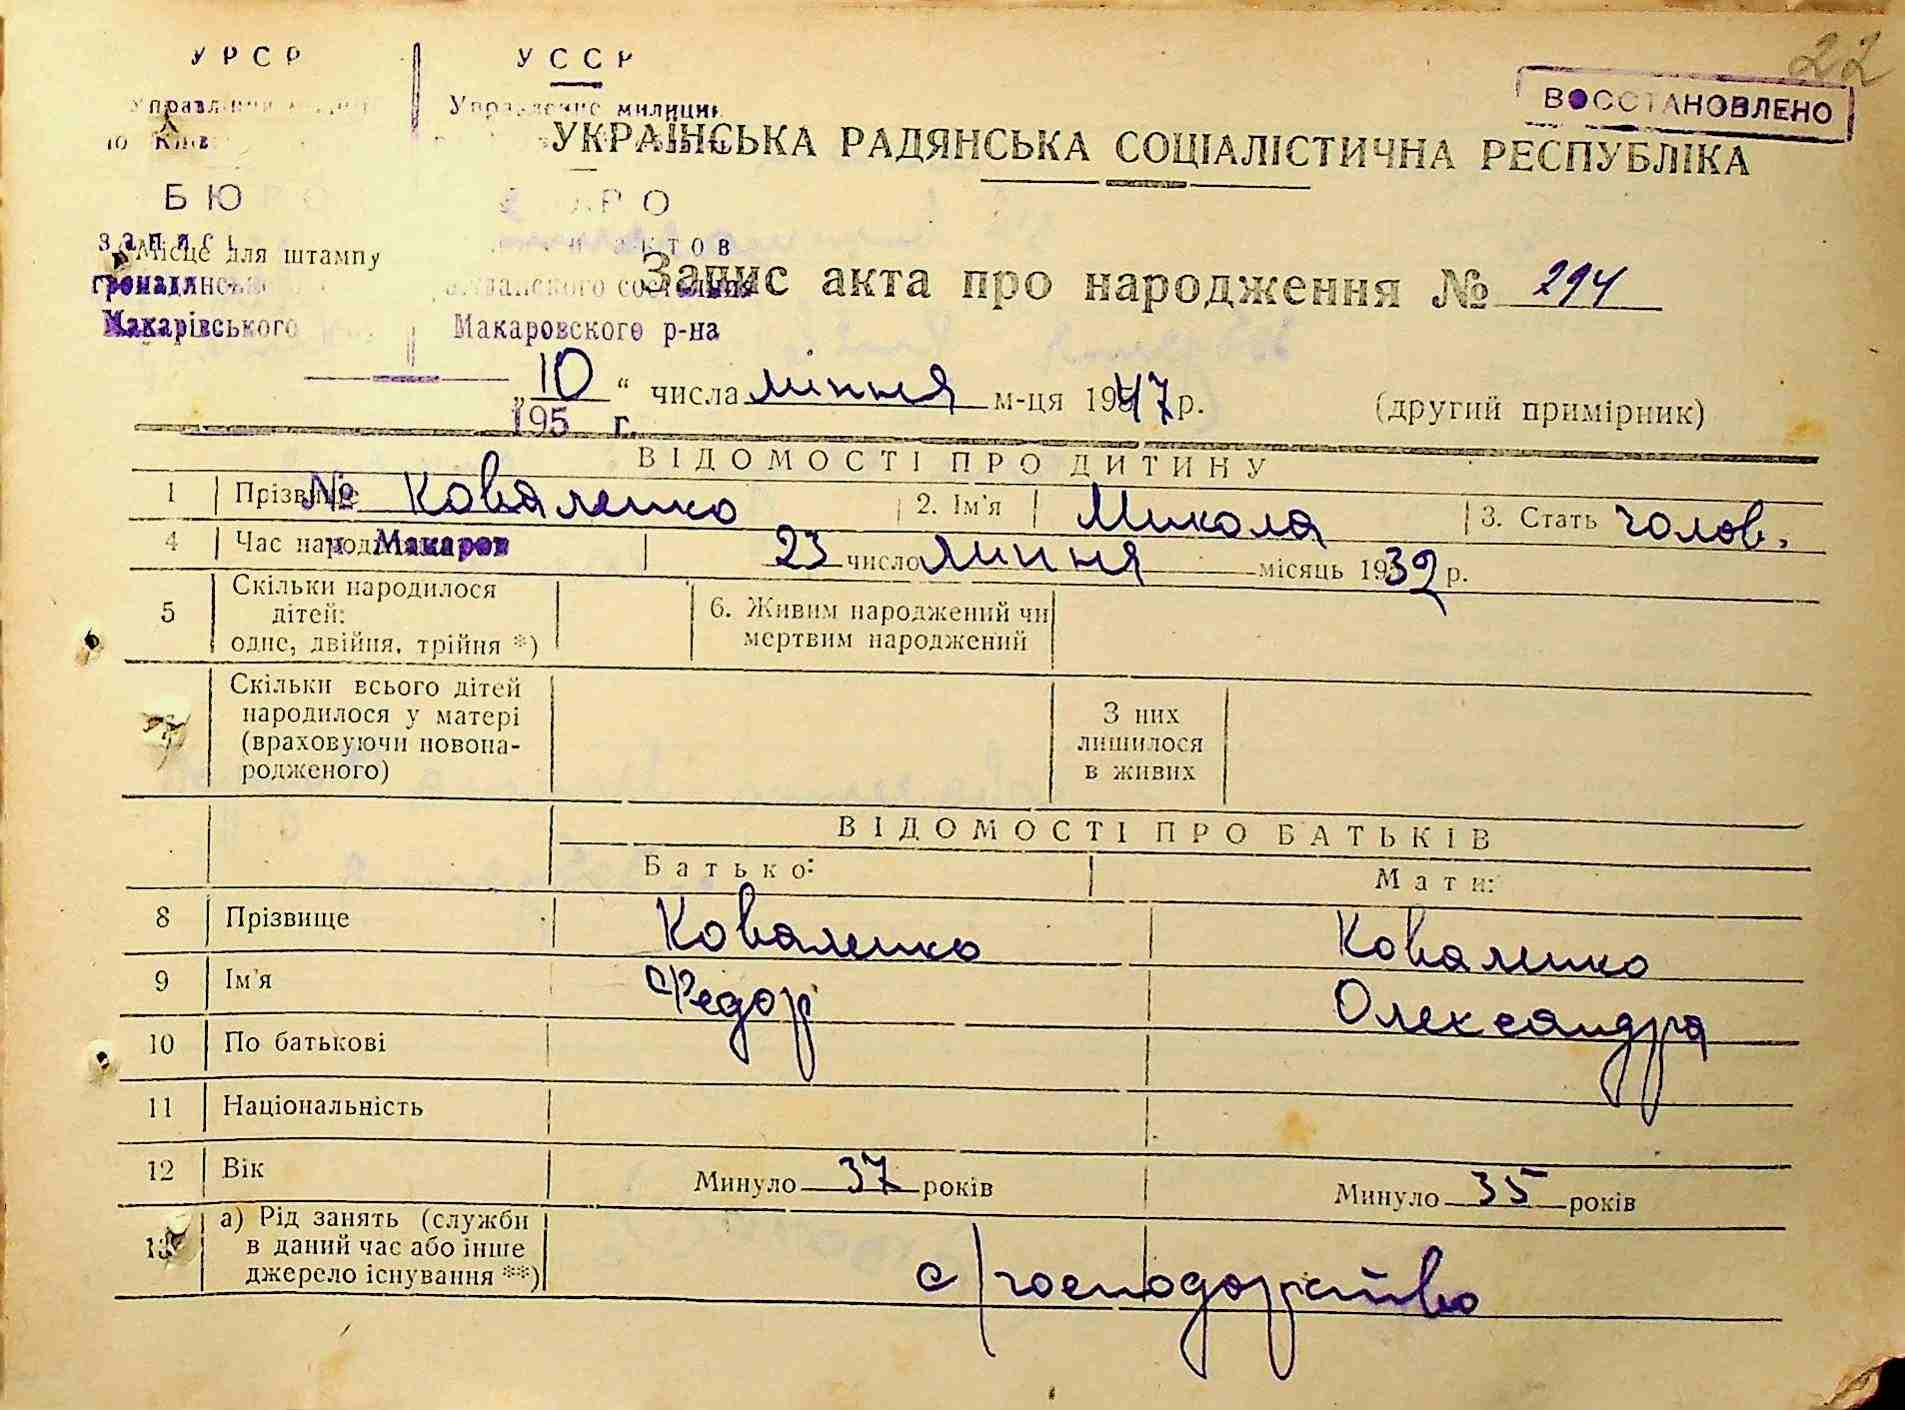 22
УРСР
УССР
ВОССТАНОВЛЕНО
Управление милиции
УКРАЇНСЬКА РАДЯНСЬКА СОЦІАЛІСТИЧНА РЕСПУБЛІКА
БЮ РО
Місце для штампу
Запис акта про народження № 294
Макарівського
Макаровского р-на
„10“ числа липня м-ця 1947 р. (другий примірник)
195 г.
ВІДОМОСТІ ПРО ДИТИНУ
1 Прізвище Коваленко 2. Ім'я Микола 3. Стать чолов.
№
4 Час народження 23 число липня місяць 1939 р.
м. Макаров
5 Скільки народилося дітей: одне, двійня, трійня *) 6. Живим народжений чи мертвим народжений
7 Скільки всього дітей народилося у матері (враховуючи новонародженого) З них лишилося в живих
ВІДОМОСТІ ПРО БАТЬКІВ
Батько: Мати:
8 Прізвище Коваленко Коваленко
9 Ім'я Федор Олександра
10 По батькові
11 Національність
12 Вік Минуло 37 років Минуло 35 років
13 а) Рід занять (служби в даний час або інше джерело існування **) с/господорство